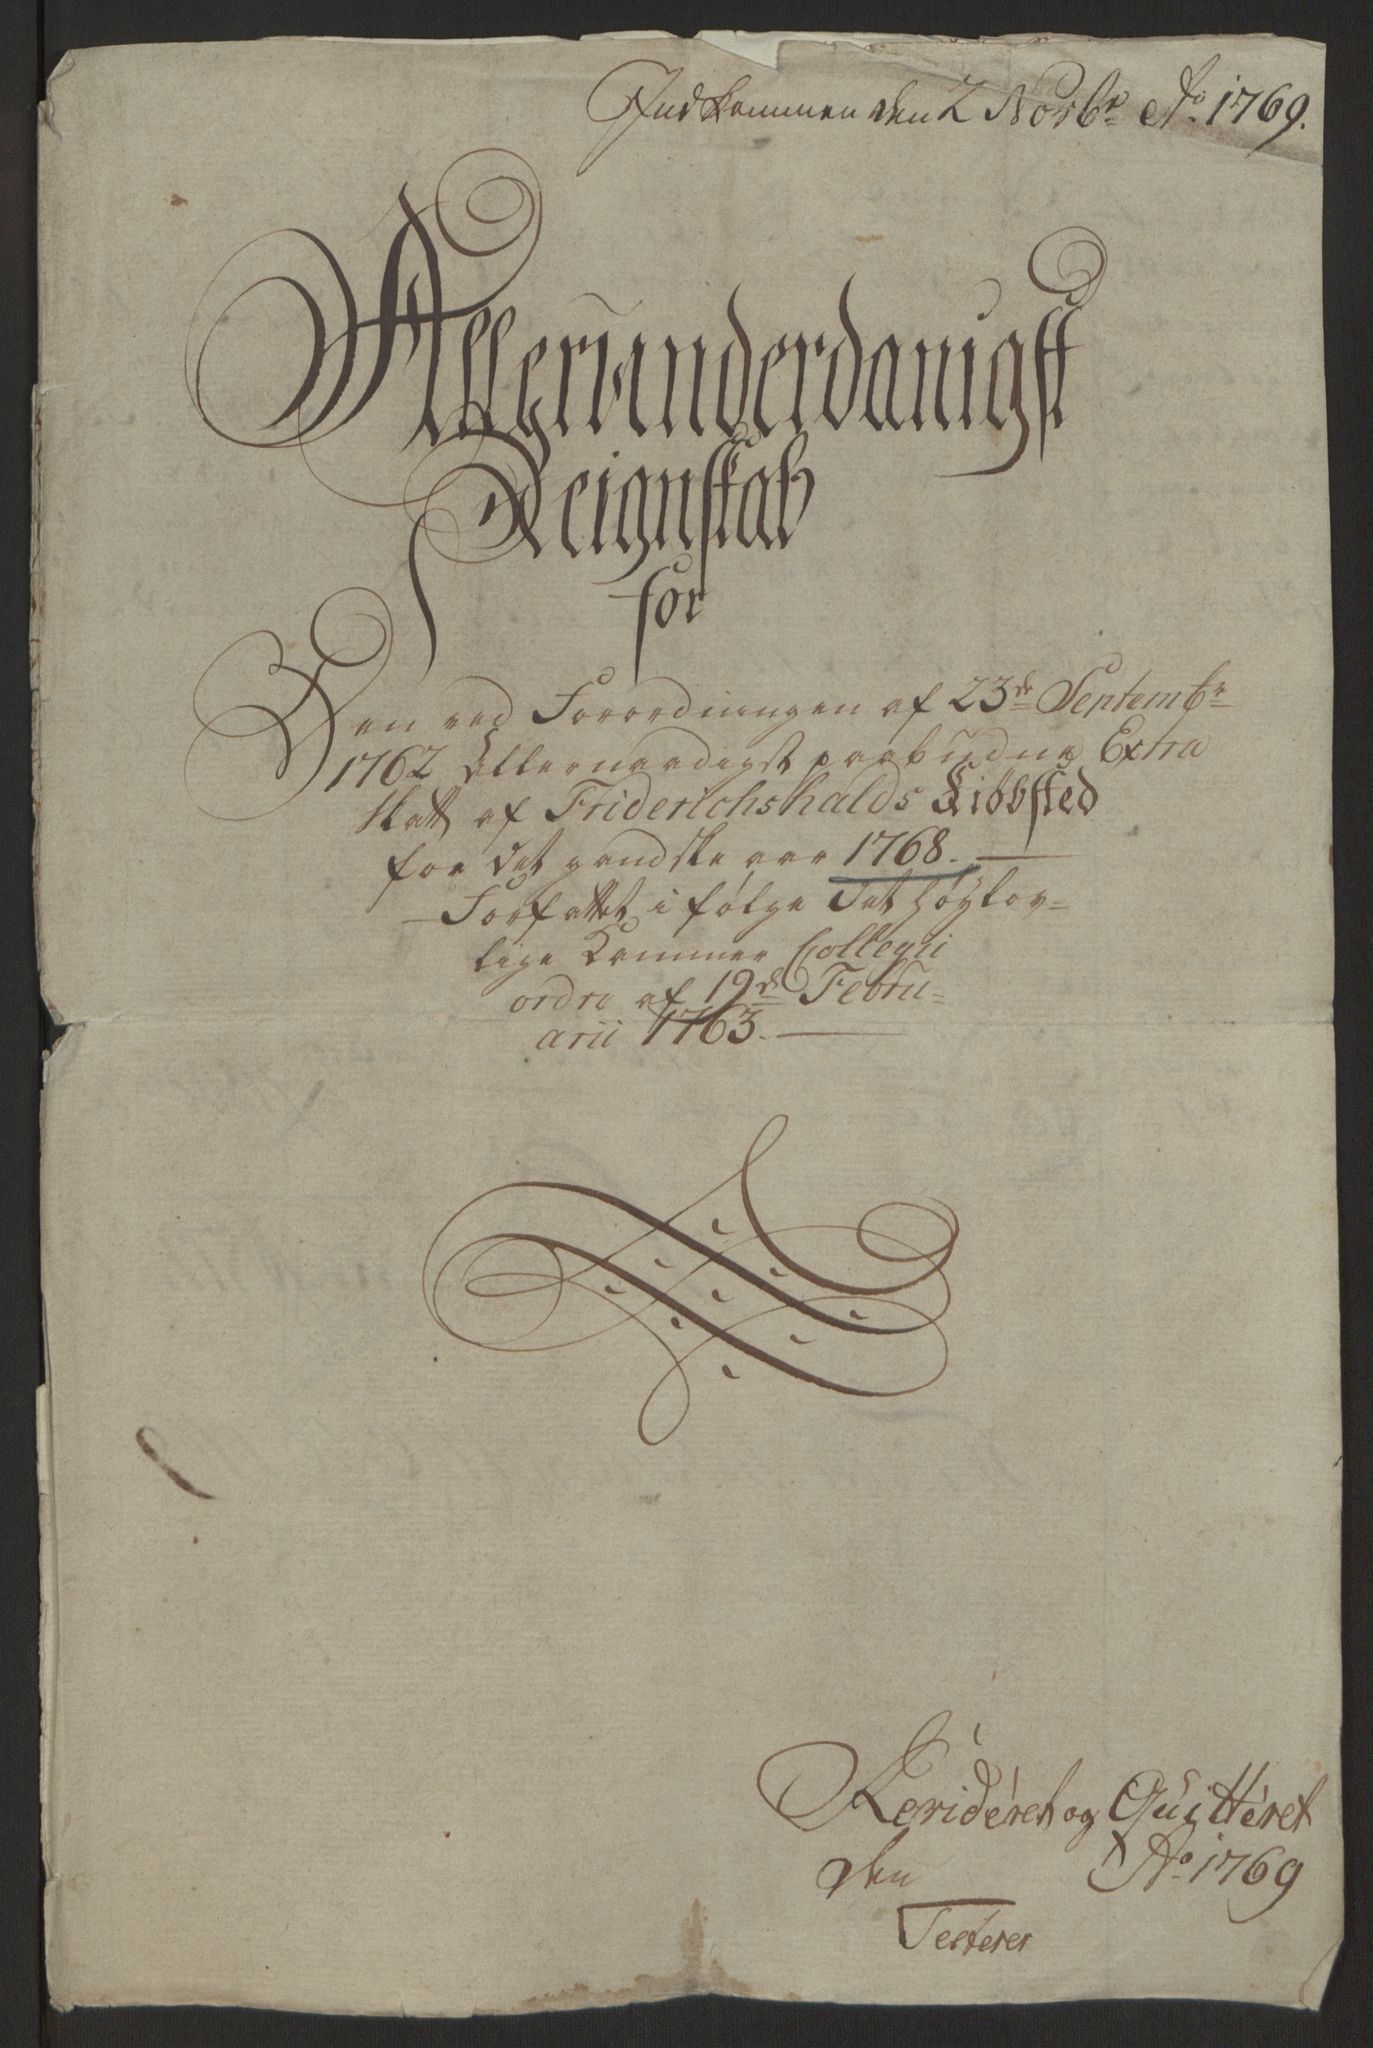 Indkommen den 2 Novbr Ao. 1769.
Allerunderdanigst
Reignskab
for
Den ved Forordningen af 23de Septembr
1762 Allernaadigst paabudne Extra
skatt af Friderichshalds Kiöbsted
for det gandske aar 1768.
Forfattet i følge Det høylov=
lige Kammer Collegii
ordre af 19de Febru=
arii 1763.
Revideret og Quitteret
den Ao. 1769